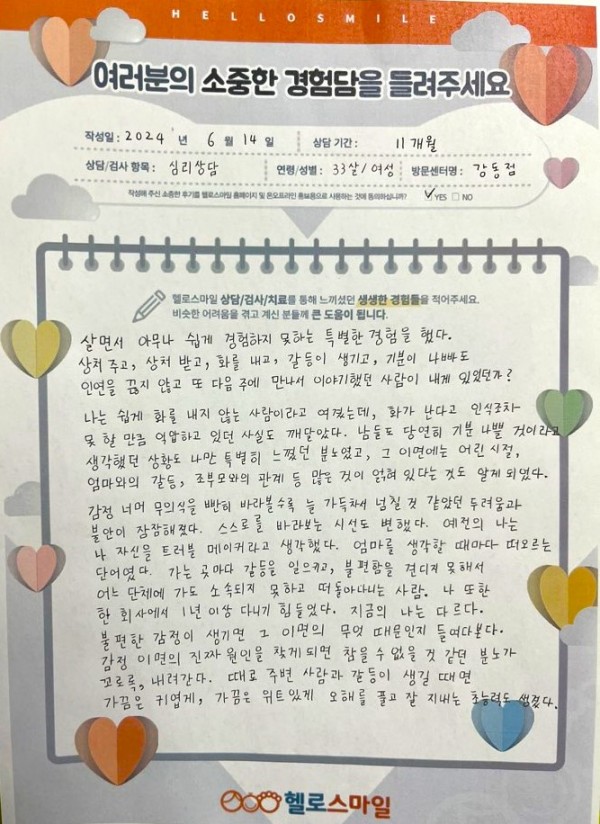 HELLOSMILE
여러분의 소중한 경험담을 들려주세요
작성일 : 2024 년 6 월 14 일 상담 기간 : 11개월
상담/검사 항목 : 심리상담 연령/성별 : 33살/여성 방문센터명 : 강동점
작성해 주신 소중한 후기를 헬로스마일 홈페이지 및 온오프라인 홍보용으로 사용하는 것에 동의하십니까? ✓YES □ NO
헬로스마일 상담/검사/치료를 통해 느끼셨던 생생한 경험들을 적어주세요.
비슷한 어려움을 겪고 계신 분들께 큰 도움이 됩니다.
살면서 아무나 쉽게 경험하지 못하는 특별한 경험을 했다.
상처 주고, 상처 받고, 화를 내고, 갈등이 생기고, 기분이 나빠도
인연을 끊지 않고 또 다음 주에 만나서 이야기했던 사람이 내게 있었던가?
나는 쉽게 화를 내지 않는 사람이라고 여겼는데, 화가 난다고 인식조차
못 할 만큼 억압하고 있던 사실도 깨달았다. 남들도 당연히 기분 나쁠 것이라고
생각했던 상황도 나만 특별히 느꼈던 분노였고, 그 이면에는 어린 시절,
엄마와의 갈등, 조부모와의 관계 등 많은 것이 얽혀 있다는 것도 알게 되었다.
감정 너머 무의식을 빤히 바라볼수록 늘 가득차서 넘칠 것 같았던 두려움과
불안이 잠잠해졌다. 스스로를 바라보는 시선도 변했다. 예전의 나는
나 자신을 트러블 메이커라고 생각했다. 엄마를 생각할 때마다 떠오르는
단어였다. 가는 곳마다 갈등을 일으키고, 불편함을 견디지 못해서
어느 단체에 가도 소속되지 못하고 떠돌아다니는 사람. 나 또한
한 회사에서 1년 이상 다니기 힘들었다. 지금의 나는 다르다.
불편한 감정이 생기면 그 이면의 무엇 때문인지 들여다본다.
감정 이면의 진짜 원인을 찾게 되면 참을 수 없을 것 같던 분노가
꼬로록, 내려간다. 때로 주변 사람과 갈등이 생길 때면
가끔은 귀엽게, 가끔은 위트있게 오해를 풀고 잘 지내는 초능력도 생겼다.
헬로스마일